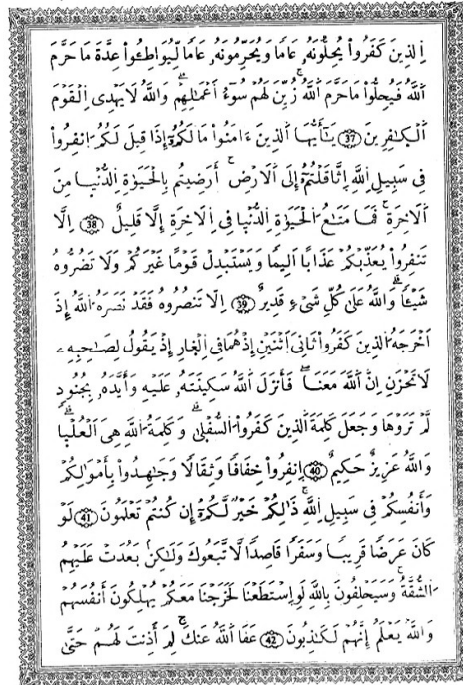 اِ۬لذِينَ كَفَرُواْ يُحِلُّونَهُۥ عَاماٗ وَيُحَرِّمُونَهُۥ عَاماٗ لِّيُوَاطِـُٔواْ عِدَّةَ مَا حَرَّمَ
اَ۬للَّهُ فَيُحِلُّواْ مَا حَرَّمَ اَ۬للَّهُ زُيِّنَ لَهُمْ سُوٓءُ أَعْمَٰلِهِمْ وَاللَّهُ لَا يَهْدِى اِ۬لْقَوْمَ
اَ۬لْكَٰفِرِينَ 37 يَٰٓأَيُّهَا اَ۬لذِينَ ءَامَنُواْ مَا لَكُمُۥٓ إِذَا قِيلَ لَكُمُ اُ۪نفِرُواْ
فِى سَبِيلِ اِ۬للَّهِ اِ۪ثَّاقَلْتُمُۥٓ إِلَى اَ۬لَارْضِ أَرَضِيتُم بِالْحَيَوٰةِ اِ۬لدُّنْي۪ا مِنَ
اَ۬لَاخِرَةِ فَمَا مَتَٰعُ اُ۬لْحَيَوٰةِ اِ۬لدُّنْي۪ا فِى اِ۬لَاخِرَةِ إِلَّا قَلِيلٌ 38 اِلَّا
تَنفِرُواْ يُعَذِّبْكُمْ عَذَاباً اَلِيماٗ وَيَسْتَبْدِلْ قَوْماً غَيْرَكُمْ وَلَا تَضُرُّوهُ
شَيْـٔاٗ وَاللَّهُ عَلَىٰ كُلِّ شَىْءٖ قَدِيرٌ 39 اِلَّا تَنصُرُوهُ فَقَدْ نَصَرَهُ اُ۬للَّهُ إِذَ
اَخْرَجَهُ اُ۬لذِينَ كَفَرُواْ ثَانِىَ اَ۪ثْنَيْنِ إِذْ هُمَا فِى اِ۬لْغ۪ارِ إِذْ يَقُولُ لِصَٰحِبِهِۦ
لَا تَحْزَنِ اِنَّ اَ۬للَّهَ مَعَنَا فَأَنزَلَ اَ۬للَّهُ سَكِينَتَهُۥ عَلَيْهِ وَأَيَّدَهُۥ بِجُنُودٖ
لَّمْ تَرَوْهَا وَجَعَلَ كَلِمَةَ اَ۬لذِينَ كَفَرُواْ اُ۬لسُّفْل۪ىٰ وَكَلِمَةُ اُ۬للَّهِ هِىَ اَ۬لْعُلْي۪ا
وَاللَّهُ عَزِيزٌ حَكِيمٌ 40 اِ۪نفِرُواْ خِفَافاٗ وَثِقَالاٗ وَجَٰهِدُواْ بِأَمْوَٰلِكُمْ
وَأَنفُسِكُمْ فِى سَبِيلِ اِ۬للَّهِ ذَٰلِكُمْ خَيْرٌ لَّكُمُۥٓ إِن كُنتُمْ تَعْلَمُونَ 41 لَوْ
كَانَ عَرَضاٗ قَرِيباٗ وَسَفَراٗ قَاصِداٗ لَّاتَّبَعُوكَ وَلَٰكِنۢ بَعُدَتْ عَلَيْهِمُ
اُ۬لشُّقَّةُ وَسَيَحْلِفُونَ بِاللَّهِ لَوِ اِ۪سْتَطَعْنَا لَخَرَجْنَا مَعَكُمْ يُهْلِكُونَ أَنفُسَهُمْ
وَاللَّهُ يَعْلَمُ إِنَّهُمْ لَكَٰذِبُونَ 42 عَفَا اَ۬للَّهُ عَنكَ لِمَ أَذِنتَ لَهُمْ حَتَّىٰ